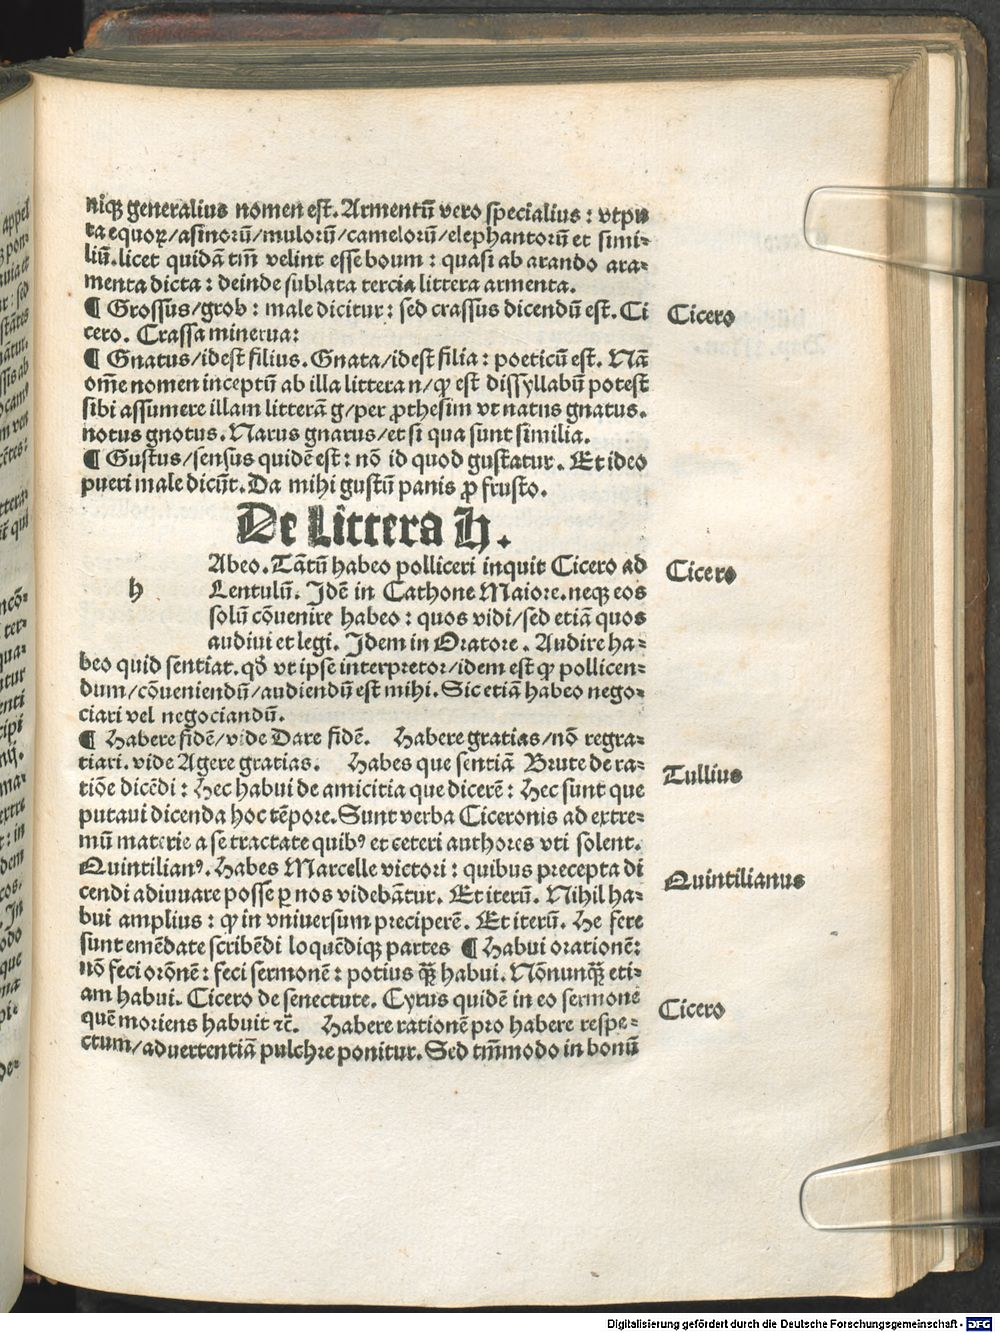 niq̃ generalius nomen est. Armentũ vero specialius: vtpu
ta equoꝝ/asinorũ/mulorũ/camelorũ/elephantorũ et simi⸗
liũ. licet quidã tm̃ velint esse boum: quasi ab arando ara⸗
menta dicta: deinde sublata tercia littera armenta.
¶ Grossus/grob: male dicitur: sed crassus dicendũ est. Ci
cero. Crassa minerua:
Cicero
¶ Gnatus/idest filius. Gnata/idest filia: poeticũ est. Nã
om̃e nomen inceptũ ab illa littera n/ꝙ est dissyllabũ potest
sibi assumere illam litterã g/per ꝓthesim vt natus gnatus.
notus gnotus. Narus gnarus/et si qua sunt similia.
¶ Gustus/sensus quidẽ est: nõ id quod gustatur. Et ideo
pueri male dicũt. Da mihi gustũ panis ꝓ frusto.
De Littera H.
h
Abeo. Tãtũ habeo polliceri inquit Cicero ad
Lentulũ. Idẽ in Cathone Maiore. neqꝫ eos
solũ cõuenire habeo: quos vidi/sed etiã quos
audiui et legi. Idem in Oratore. Audire ha⸗
beo quid sentiat. qð vt ipse interpretor/idem est ꝙ pollicen⸗
dum/cõueniendũ/audiendũ est mihi. Sic etiã habeo nego⸗
ciari vel negociandũ.
Cicero
¶ Habere fidẽ/vide Dare fidẽ. Habere gratias/nõ regra⸗
tiari. vide Agere gratias. Habes que sentiã Brute de ra⸗
tiõe dicẽdi: Hec habui de amicitia que dicerẽ: Hec sunt que
putaui dicenda hoc tẽpore. Sunt verba Ciceronis ad extre⸗
mũ materie a se tractate quibꝰ et ceteri authores vti solent.
Tullius
Quintilianꝰ. Habes Marcelle victori: quibus precepta di
cendi adiuuare posse ꝑ nos videbãtur. Et iterũ. Nihil ha⸗
bui amplius: ꝙ in vniuersum preciperẽ. Et iterũ. He fere
sunt emẽdate scribẽdi loquẽdiqꝫ partes ¶ Habui orationẽ:
nõ feci orõnẽ: feci sermonẽ: potius q̃ꝫ habui. Nõnunq̃ꝫ eti⸗
am habui. Cicero de senectute. Cyrus quidẽ in eo sermone
quẽ moriens habuit ⁊c̃. Habere rationẽ pro habere respe⸗
ctum/aduertentiã pulchre ponitur. Sed tm̃modo in bonũ
Quintilianus
Cicero
Digitalisierung gefördert durch die Deutsche Forschungsgemeinschaft - DFG